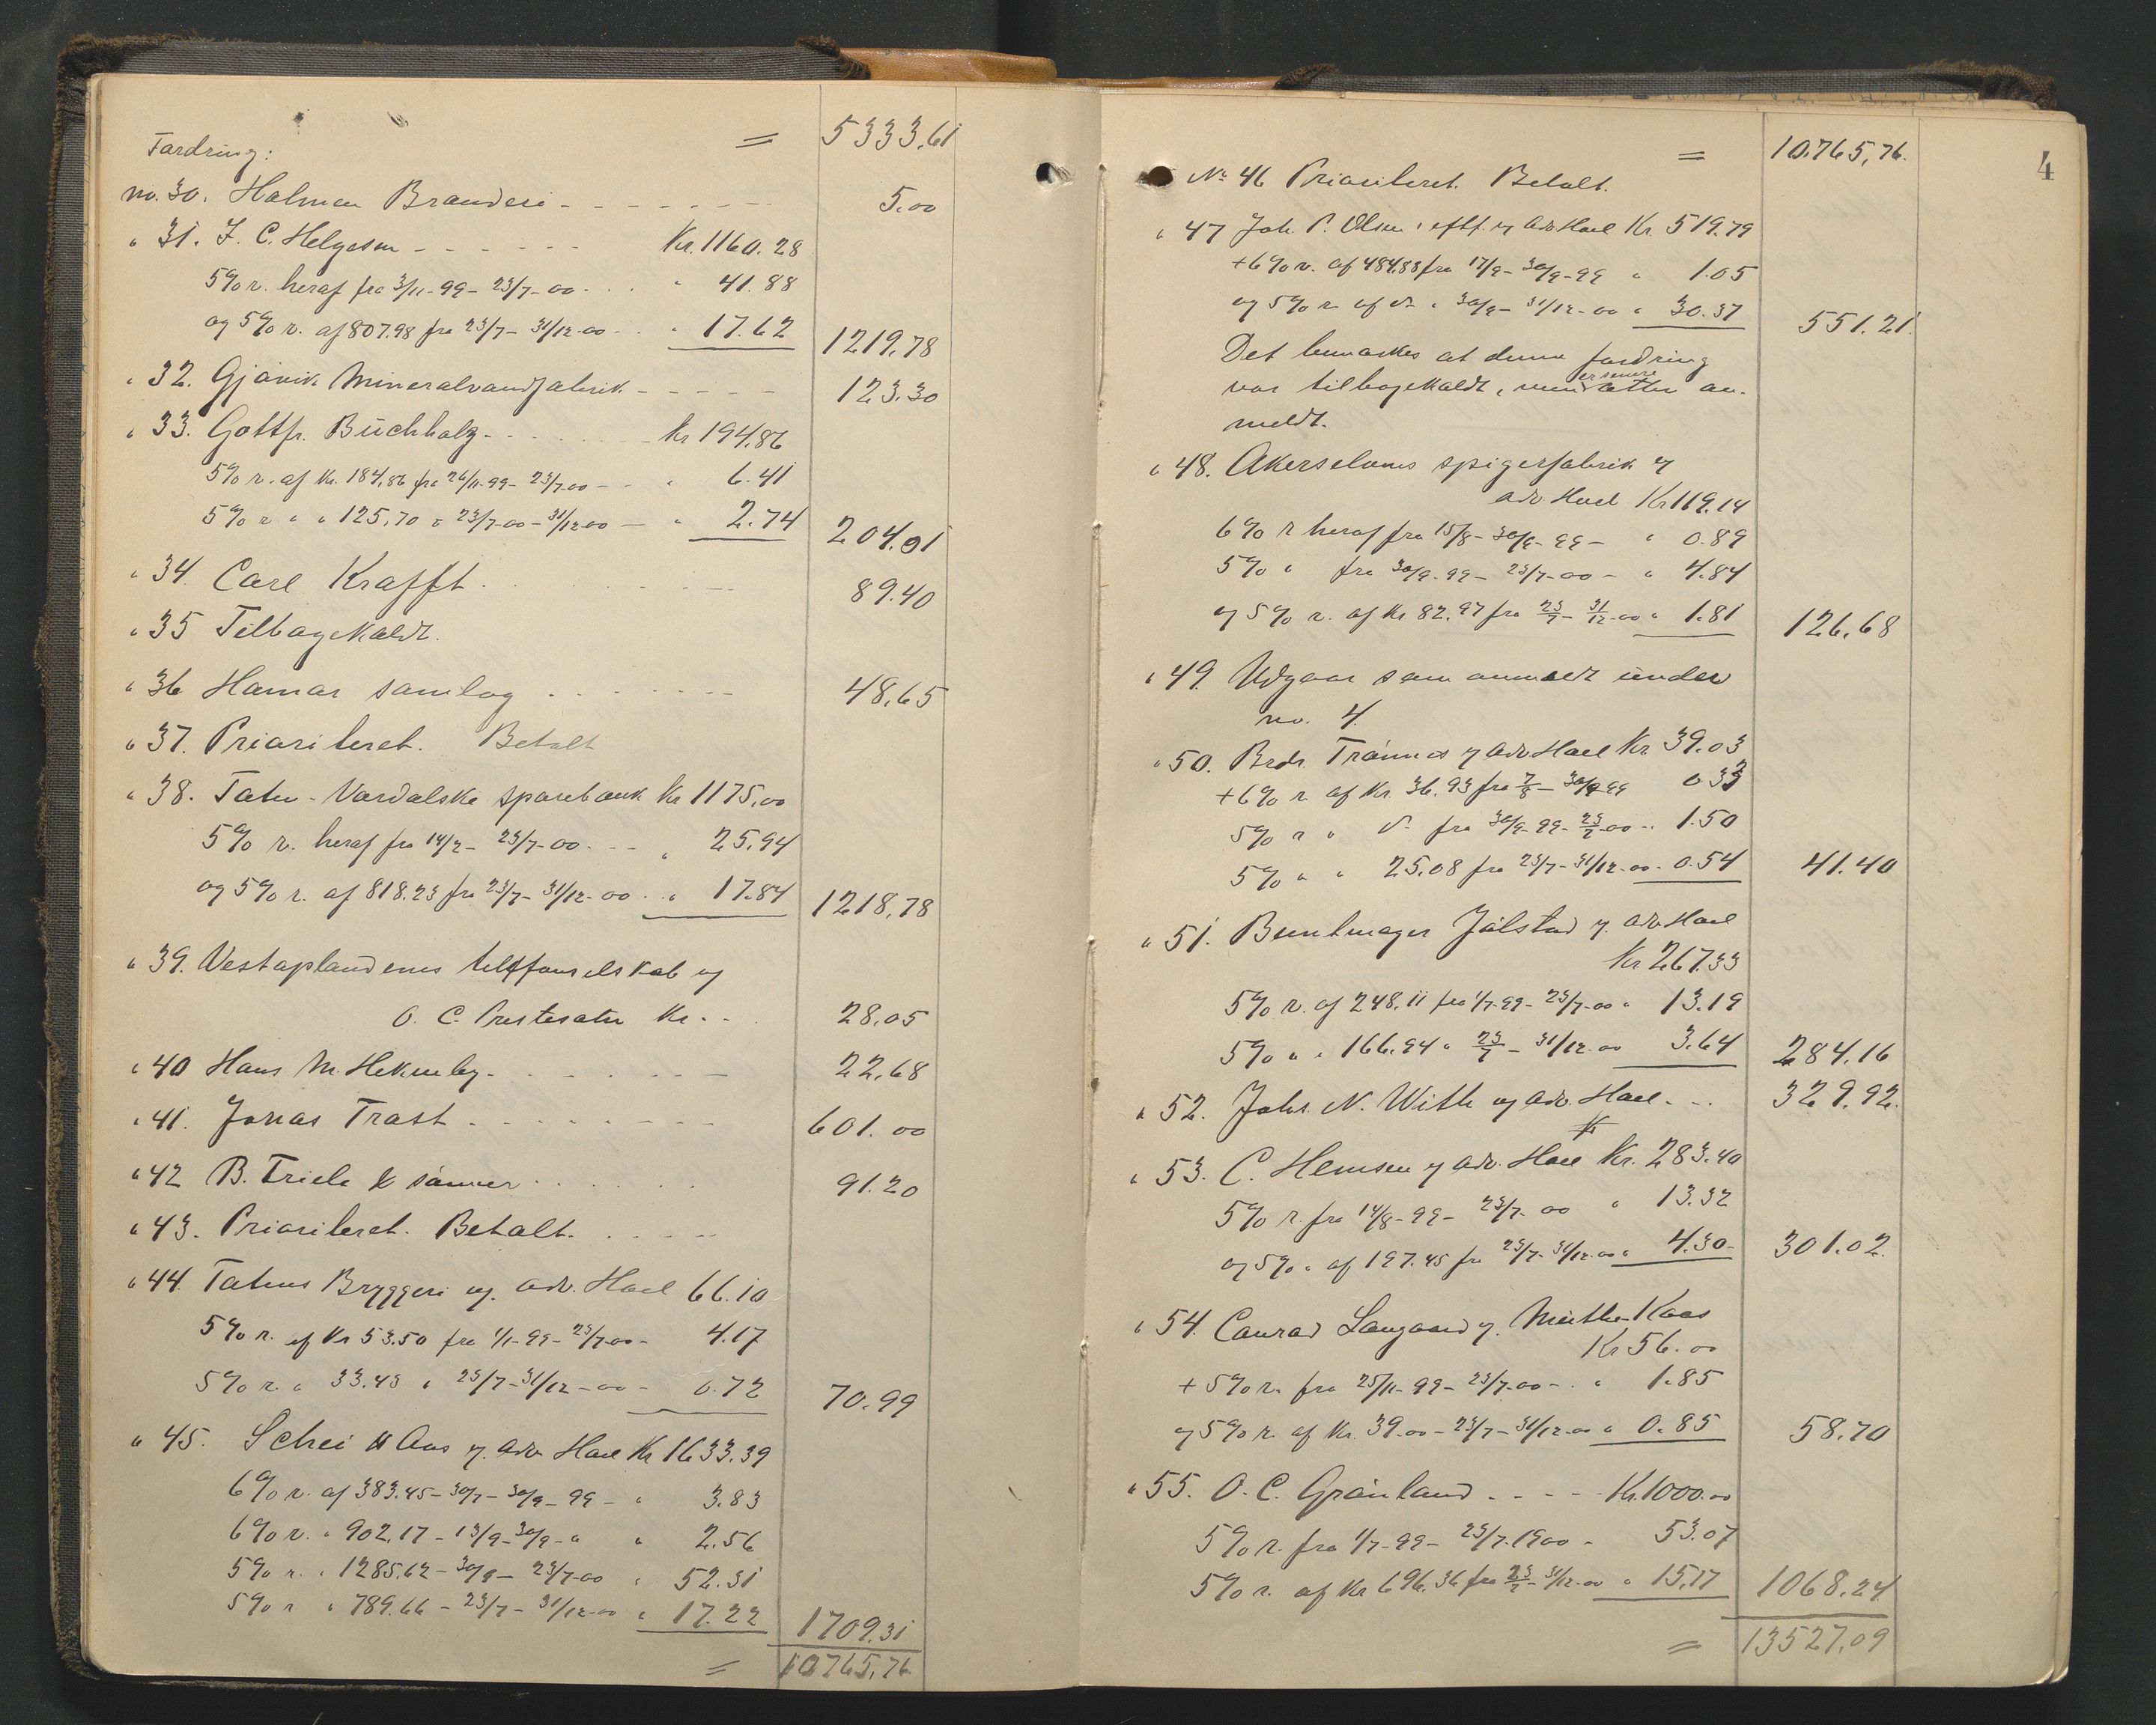 = 5333,61
Fordring:
no. 30. Holmen Brænderi - - - 5.00
" 31. F. C. Helgesen - - - Kr. 1160.28
5% r. heraf fra 3/11-99 - 23/7-00 - " 41.88
og 5% r. af 807.98 fra 23/7 - 31/12-00 - " 17.62 1219,78
" 32. Gjøvik Mineralvandfabrik - - - 123.30
" 33. Gottfr. Büchholz - - - kr 194,86
5% r. af Kr. 184,86 fra 26/11-99 - 23/7-00 - " 6.41
5% r " " 125,70 " 23/7-00 - 31/12-00 - " 2.74 204,01
" 34. Carl Krafft - - - 89.40
" 35 Tilbagekaldt.
" 36 Hamar samlag - - - 48,65
" 37. Prioriteret. Betalt
" 38. Toten-Vardalske sparebank Kr 1175,00
5% r. heraf fra 14/2 - 23/7-00 - " 25,94
og 5% r. af 818.23 fra 23/7 - 31/12-00 - " 17.84 1218,78
" 39. Vestoplandenes telefonselskab og
O. C. Kr. - 28,05
" 40 Hans M. - - - 22,68
" 41. Jonas Trast - - - 601.00
" 42 B. Triele & sønner - - - 91.20
" 43. Prioriteret. Betalt. - - -
" 44. Totens Bryggeri v. adv. Hoel 66.10
5% r. af Kr 53.50 fra 1/1-99 - 23/7-00 - 4.17
5% r. " 33.43 " 23/7 - 31/12-00 - 0.72 70.99
" 45. Schei & Aas v. adv Hoel Kr 1633,39
6% r. af 383.45 - 30/7 - 30/9-99 - " 3.83
6% r. " 902,17 - 13/9 - 30/9 - " " 2.56
5% r. " 1285,62 - 30/9 - 23/7-00 " 52.31
5% r " 789.66 - 23/7 - 31/12-00 " 17.22 1709,31
= 10765,76
4
= 10.765,76.
No 46 Prioriteret. Betalt.
" 47 Joh. P. Olsen's eftf. v adv Hoel Kr. 519.79
+ 6% r. af 484.88 fra 17/9 - 30/9-99 " 1.05
og 5% r. af do " 30/9 - 31/12-00 " 30.37 551.21.
Det bemærkes at denne fordring
var tilbagekaldt, men er senere atter an-
meldt.
" 48. Akerselvens spigerfabrik v
adv Hoel Kr 119.14
6% r heraf fra 15/8 - 30/9-99 - " 0.89
5% " fra 30/9-99 - 23/7-00 - " 4.84
og 5% r. af Kr 82,97 fra 23/7 - 31/12-00 " 1.81 126,68
" 49. Udgaar som anmeldt under
no. 4.
" 50. Brdr. Trønnes v adv. Hoel Kr. 39.03
+ 6% r af Kr. 36.93 fra 7/8 - 30/9-99 0.33
5% r " do fra 30/9-99 - 23/7-00 - " 1.50
5% " " 25.08 fra 23/7 - 31/12-00 - 0.54 41.40
" 51. Buntmager Jølstad v. adv Hoel
Kr. 267.33
5% r. af 248.11 fra 1/7-99 - 23/7-00 " 13.19
5% " " 166.94 " 23/7 - 31/12-00 3.64 284.16
" 52. Johs. N. With v adv. Hoel - - - 329,92.
" 53. C. Hemsen v adv. Hoel Kr. 283.40
5% r. fra 14/8-99 - 23/7-00 " 13.32
og 5% " af 197.45 fra 23/7 - 31/12-00 " 4.30 301.02.
" 54. Conrad Langaard v. Kaas
Kr 56.00
+ 5% r. fra 25/11-99 - 23/7-00 - " 1.85
og 5% r af Kr. 39.00 - 23/7 - 31/12-00 " 0.85 58.70
" 55. O. C. Grønland - - - Kr. 1000.00
5% r. fra 1/7-99 - 23/7-1900 - 53.07
5% r. af Kr 696,36 fra 23/7 - 31/12-00 " 15,17 1068.24
= 13527,09